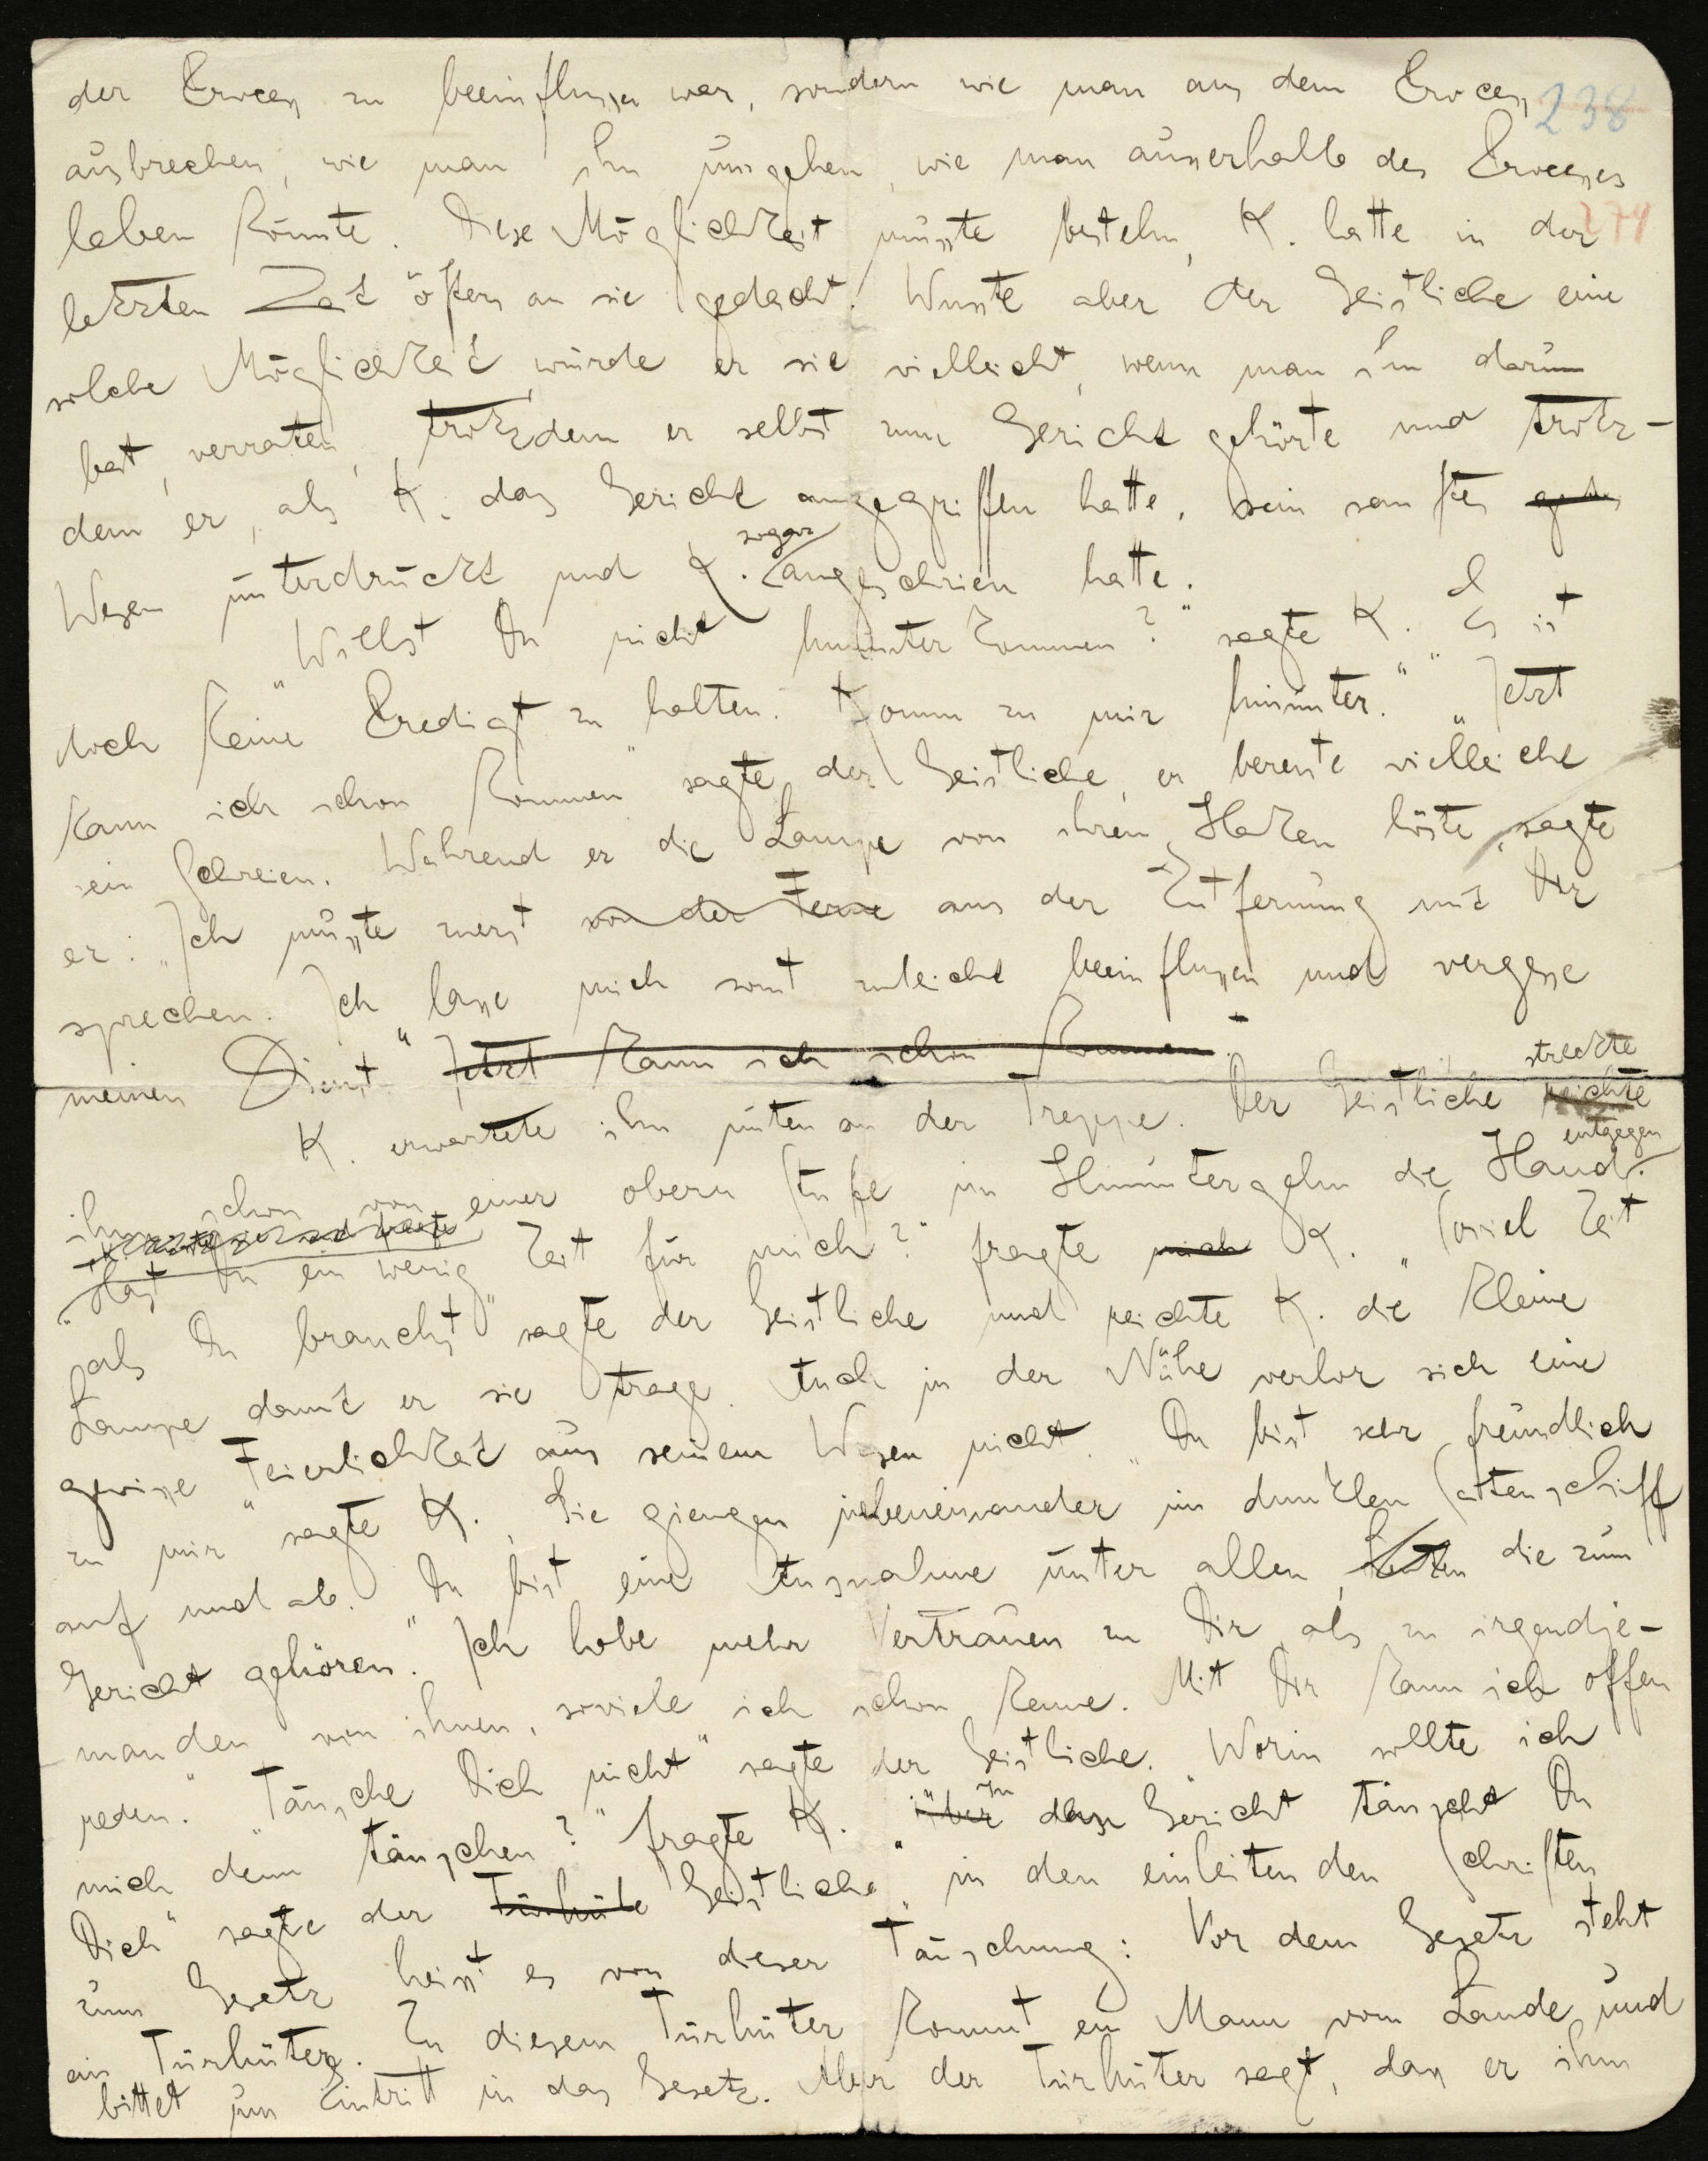 der Process zu beeinflussen war, sondern wie man aus dem Process
238
ausbrechen, wie man ihn umgehen, wie man ausserhalb des Processes
leben könnte. Diese Möglichkeit musste bestehn, K. hatte in der
letzten Zeit öfters an sie gedacht. Wusste aber der Geistliche eine
solche Möglichkeit, würde er sie vielleicht, wenn man ihn darum
bat, verraten, trotzdem er selbst zum Gericht gehörte und trotz-
dem er, als K. das Gericht angegriffen hatte, sein sanftes
sogar
Wesen unterdrückt und K. angeschrien hatte.
„Willst Du nicht hinunterkommen?" sagte K. „Es ist
doch keine Predigt zu halten. Komm zu mir hinunter." „Jetzt
kann ich schon kommen" sagte der Geistliche, er bereute vielleicht
sein Schreien. Während er die Lampe von ihrem Haken löste, sagte
er: „Ich musste zuerst von der Ferne aus der Entfernung mit Dir
sprechen. Ich lasse mich sonst zuleicht beeinflussen und vergesse
meinen Dienst." Jetzt kann ich schon kommen
streckte
K. erwartete ihn unten an der Treppe. Der Geistliche reichte
entgegen
ihm schon von einer obern Stufe im Hinuntergehn die Hand.
„Hast Du ein wenig Zeit für mich?" fragte mich K. „Soviel Zeit
als Du brauchst" sagte der Geistliche und reichte K. die kleine
Lampe damit er sie trage. Auch in der Nähe verlor sich eine
gewisse Feierlichkeit aus seinem Wesen nicht. „Du bist sehr freundlich
zu mir" sagte K. Sie giengen nebeneinander im dunklen Seitenschiff
auf und ab. „Du bist eine Ausnahme unter allen, die zum
Gericht gehören. Ich habe mehr Vertrauen zu Dir als zu irgendje-
manden von ihnen, soviele ich schon kenne. Mit Dir kann ich offen
reden." „Täusche Dich nicht" sagte der Geistliche. „Worin sollte ich
In
mich denn täuschen?" fragte K. „über dem Gericht täuscht Du
Dich" sagte der Türhüte Geistliche, „in den einleitenden Schriften
zum Gesetz heisst es von dieser Täuschung: Vor dem Gesetz steht
ein Türhüter. Zu diesem Türhüter kommt ein Mann vom Lande und
bittet um Eintritt in das Gesetz. Aber der Türhüter sagt, dass er ihm